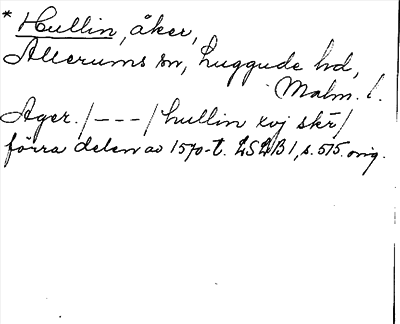 * Hullin, åker,
Allerums sn, Luggude hd,
Malm. l.
Ager. / - - - / hullin xvj skr /
förra delen av 1570-t. LSLB 1, s. 515. orig.